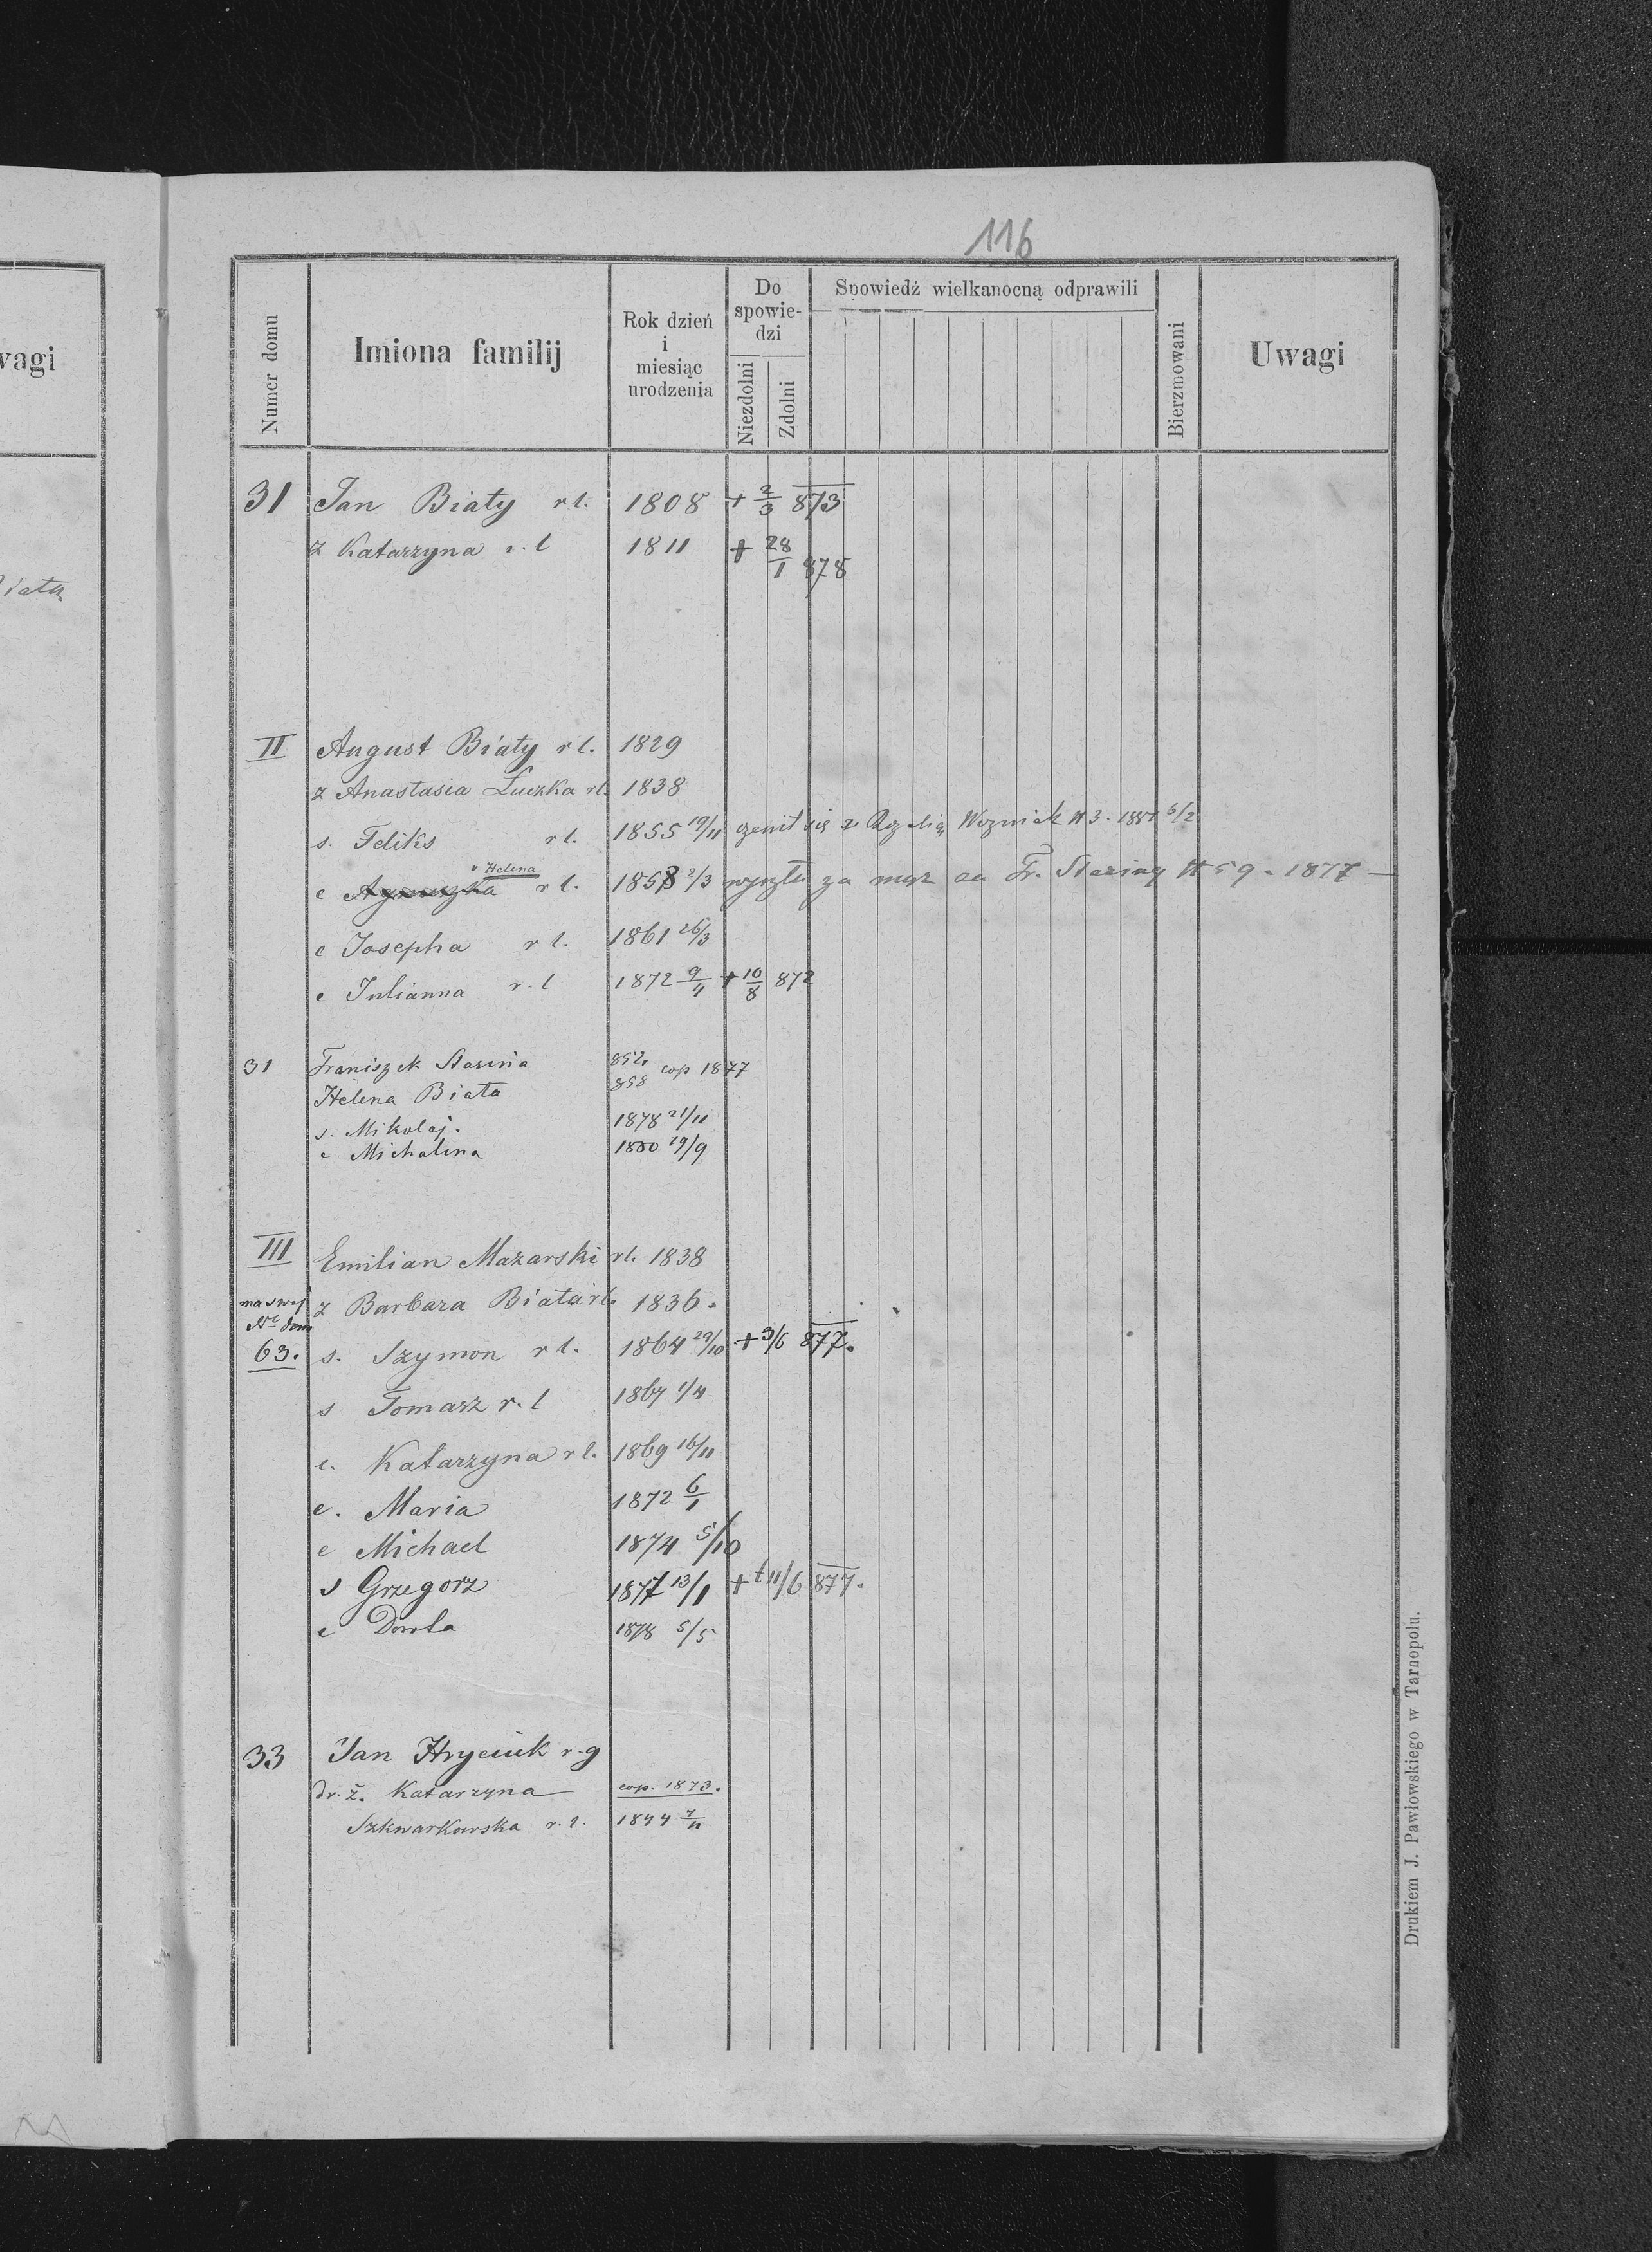 vagi
116
Numer domu
Imiona familij
Rok dzień
i
miesiąc
urodzenia
Do
spowie-
dzi
Niezdolni
Zdolni
Spowiedź wielkanocną odprawili
Bierzmowani
Uwagi
31 Jan Biały r l. 1808 + 2/3 873
z Katarzyna r. l 1811 + 28/1 878
II August Biały r l. 1829
z Anastasia Luczka rl. 1838
s. Feliks r l. 1855 19/11 ożenił się z Rozalią Wozniak N 3. 6/2
Helena
c Agnieszka r l. 1858 2/3 wyszła za mąż Fr. N 59. 1877 —
c Josepha r l. 1861 26/3
c Julianna r. l 1872 9/4 + 10/8 872
31 Franiszek 852. cop 1877
Helena Biała 858
s. Mikolaj. 1878 21/11
c Michalina 1880 29/9
III Emilian Mazarski rl. 1838
ma swój z Barbara Biała rl. 1836.
Nr dom
63. s. Szymon r l. 1864 29/10 + 3/6 877.
s Tomasz r. l 1867 1/4
c. Katarzyna r l. 1869 16/11
c. Maria 1872 6/1
c Michael 1874 5/10
s Grzegorz 1877 13/1 + t 11/6 877.
c Dorota 1878 5/5
33 Jan Hryciuk r. g
dr. ż. Katarzyna cop. 1873.
Szkwarkowska r. l. 1844 7/11
Drukiem J. Pawłowskiego w Tarnopolu.